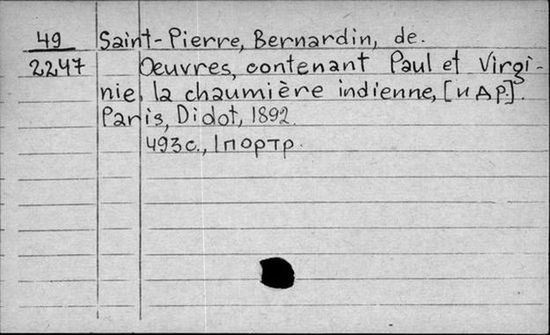 49 Saint-Pierre, Bernardin, de.
2247 Oeuvres, contenant Paul et Virgi-
nie, la chaumière indienne, [и др.].
Paris, Didot, 1892.
493с., 1 портр.